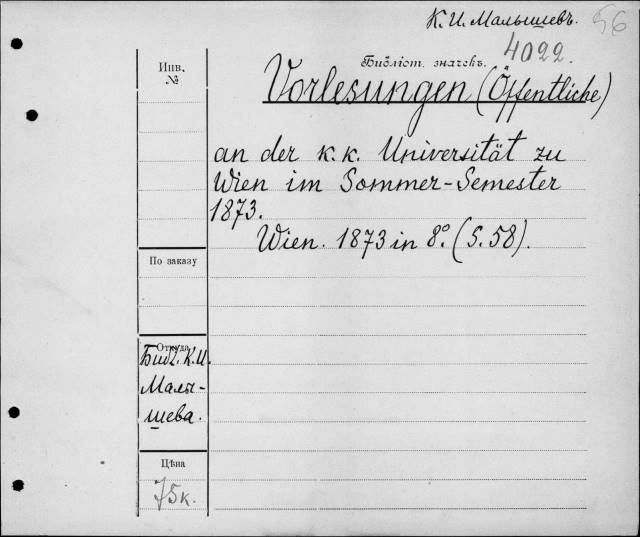 К. И. Малышевъ. 56
Библіот. значекъ. 4022.
Инв.
№
Vorlesungen (Öffentliche)
an der k. k. Universität zu
Wien im Sommer-Semester
1873.
Wien. 1873 in 8º. (S. 58).
По заказу
Откуда
Библ. К. И.
Малы-
шева.
Цѣна
75 к.